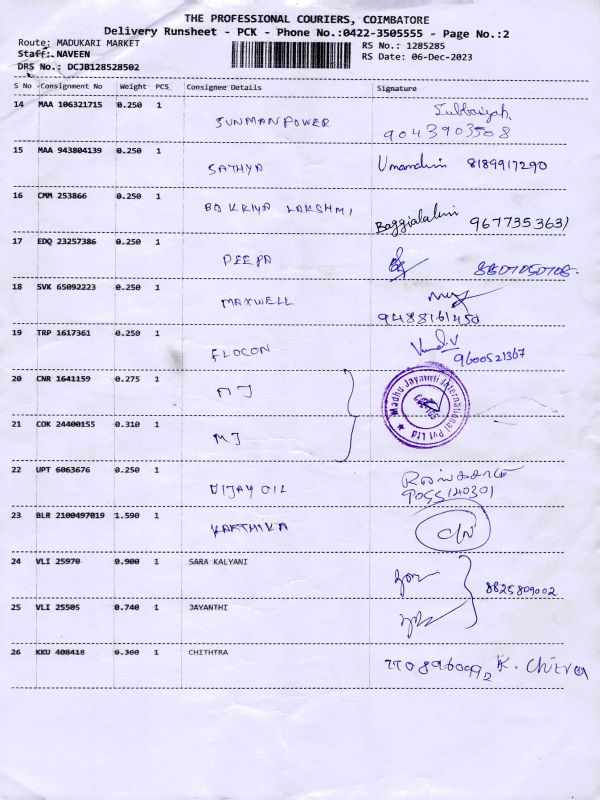 THE PROFESSIONAL COURIERS, COIMBATORE
Delivery Runsheet - PCK - Phone No.:0422-3505555 - Page No.:2
Route: MADUKARI MARKET RS No.: 1285285
Staff: NAVEEN RS Date: 06-Dec-2023
DRS No.: DCJB128528502
S No Consignment No Weight PCS Consignee Details Signature
14 MAA 106321715 0.250 1
SUNMANPOWER
9043903508
15 MAA 943804139 0.250 1
SATHYA 8189917290
16 CMM 253866 0.250 1
BAKKIYA LAKSHMI
967735363)
17 EDQ 23257386 0.250 1
DEEPA
18 SVK 65092223 0.250 1
MAXWELL
9488161450
19 TRP 1617361 0.250 1
FLOCON 9600521367
20 CNR 1641159 0.275 1
MJ
Madhu Jayanti International Pvt Ltd
21 COK 24400155 0.310 1
MJ
22 UPT 6063676 0.250 1
VIJAY OIL
9055140301
23 BLR 2100497019 1.590 1
KARTHIKA C/N
24 VLI 25970 0.900 1 SARA KALYANI
8825809002
25 VLI 25505 0.740 1 JAYANTHI
26 KKU 408418 0.360 1 CHITHTRA
7708960992 K. Chitra